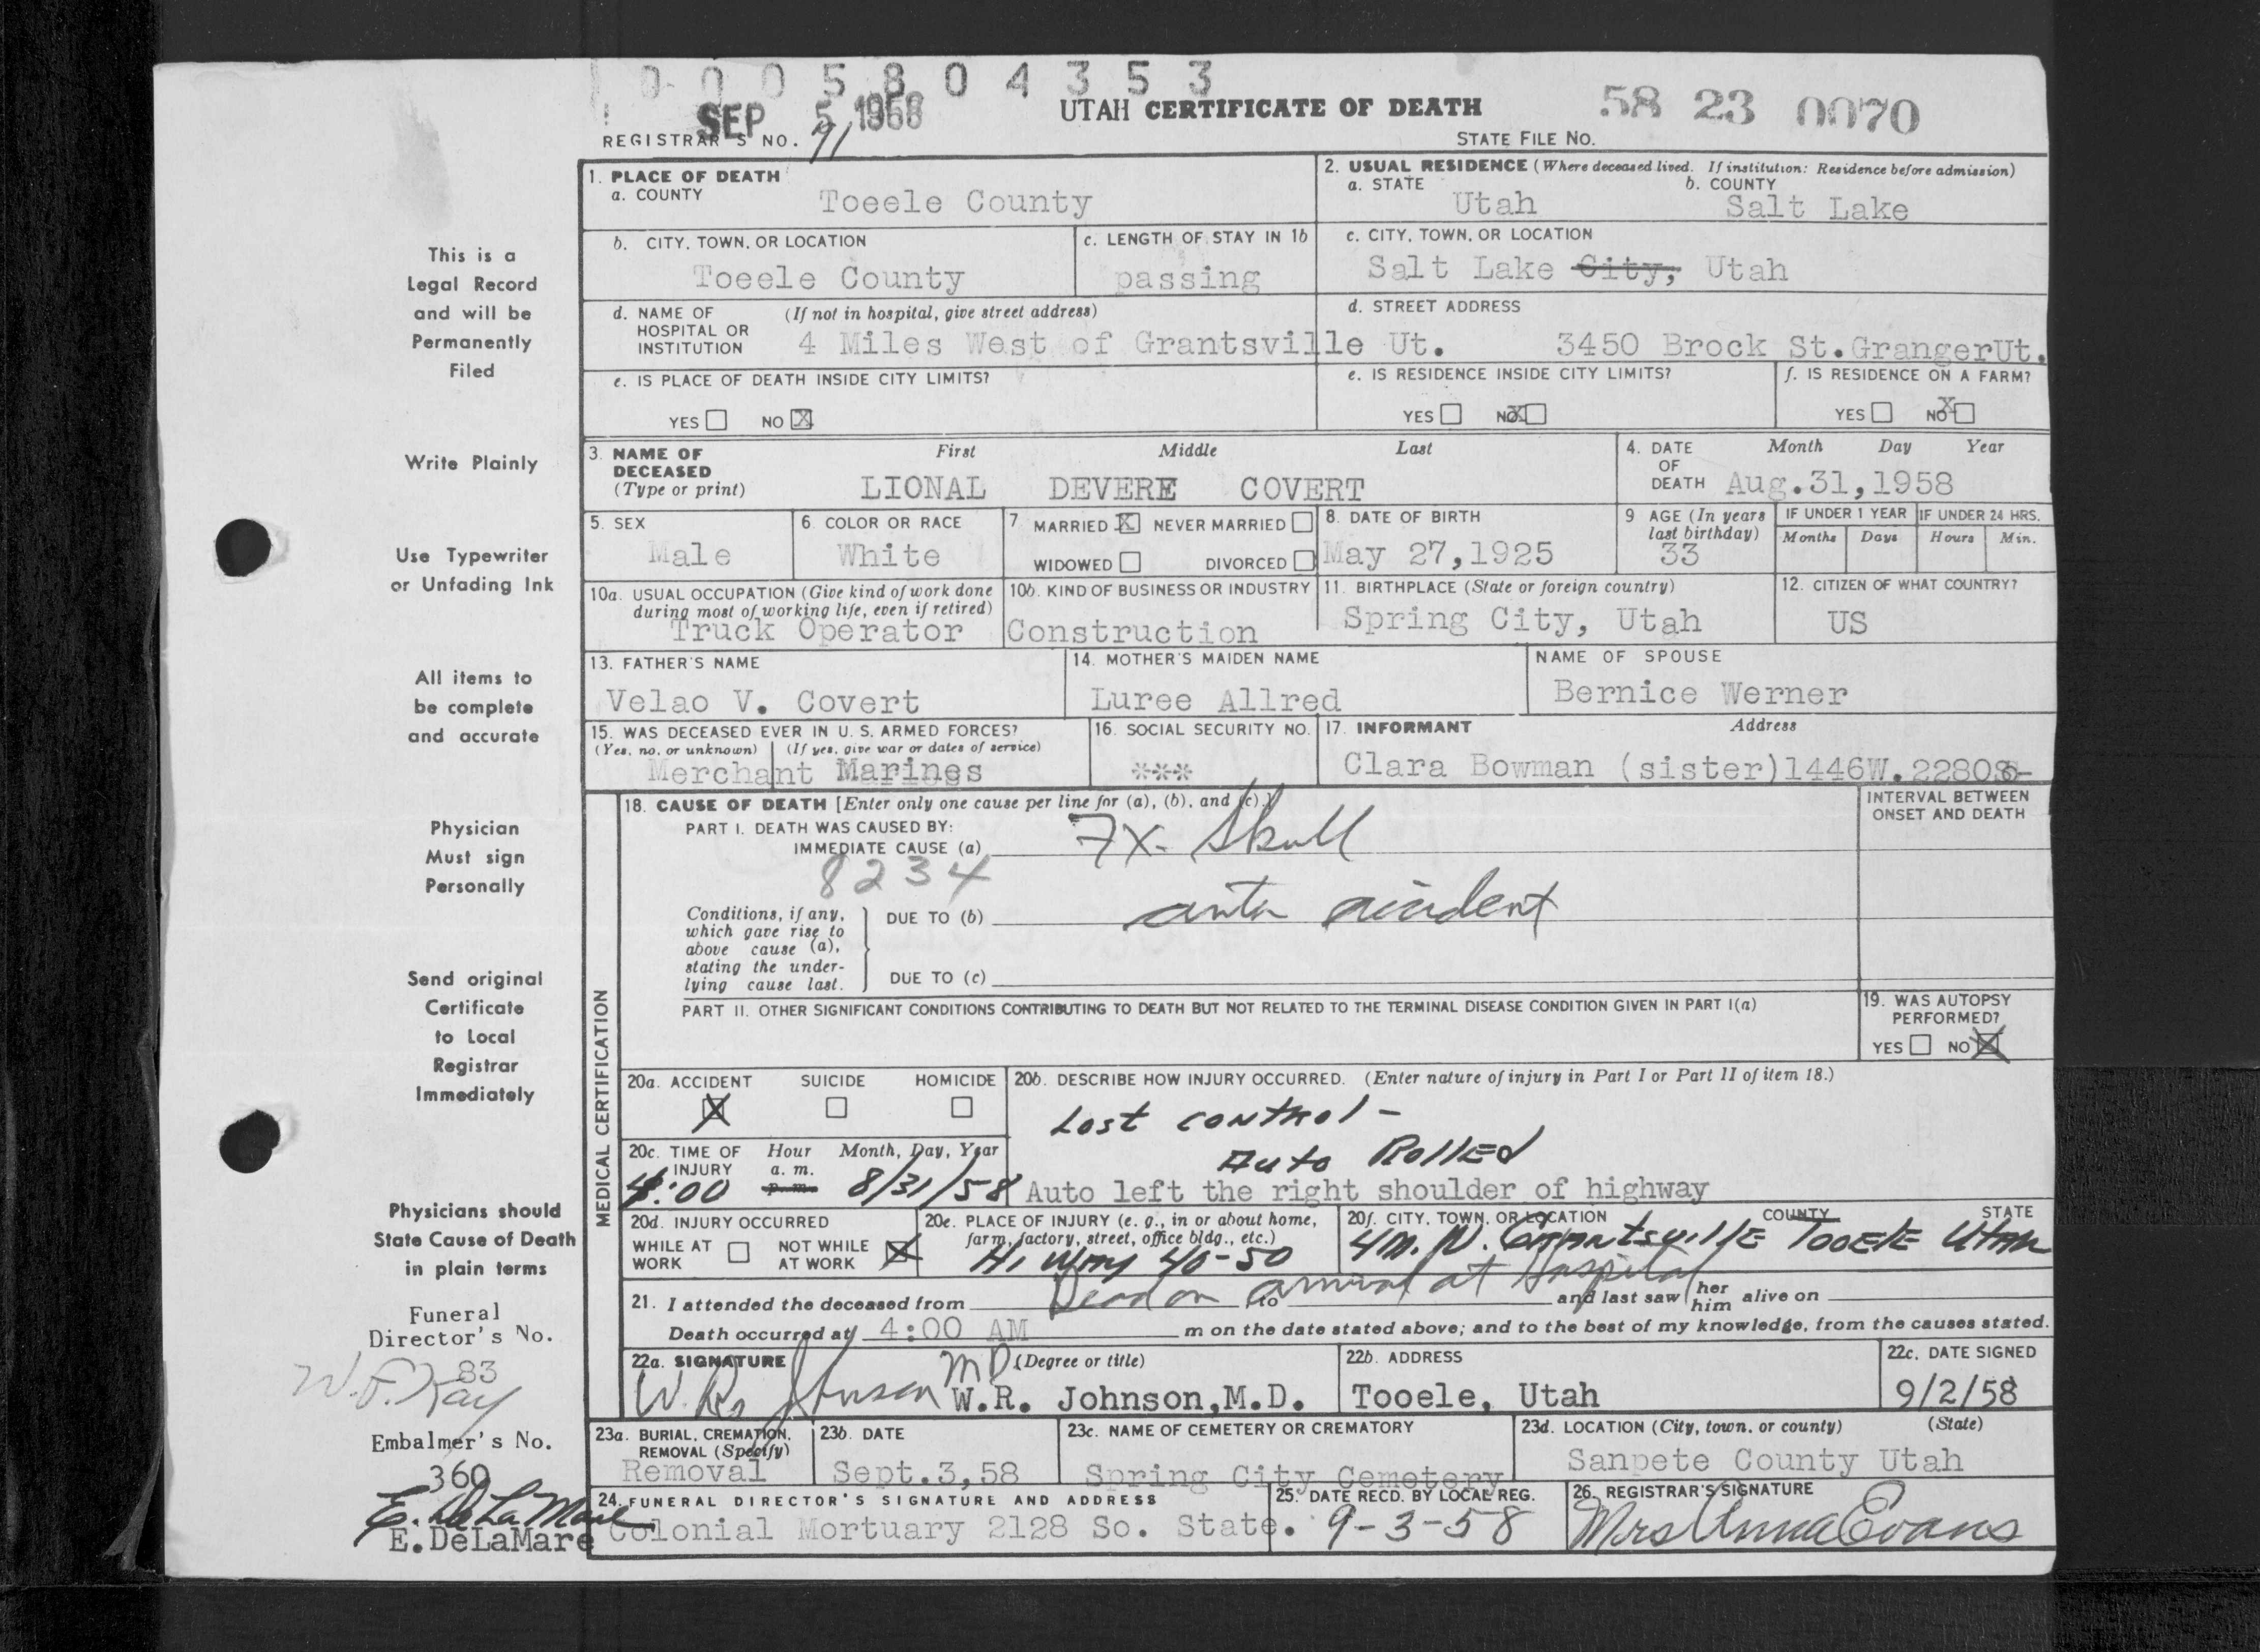 0 0 0 5 8 0 4 3 5 3
SEP 5 1958
UTAH CERTIFICATE OF DEATH
58 23 0070
REGISTRAR'S NO. 71
STATE FILE NO.
1. PLACE OF DEATH
a. COUNTY
Toeele County
2. USUAL RESIDENCE (Where deceased lived. If institution: Residence before admission)
a. STATE
Utah
b. COUNTY
Salt Lake
b. CITY, TOWN, OR LOCATION
Toeele County
c. LENGTH OF STAY IN 1b
passing
c. CITY, TOWN, OR LOCATION
Salt Lake City, Utah
d. NAME OF HOSPITAL OR INSTITUTION
(If not in hospital, give street address)
4 Miles West of Grantsville Ut.
d. STREET ADDRESS
3450 Brock St.GrangerUt.
e. IS PLACE OF DEATH INSIDE CITY LIMITS?
YES NO X
e. IS RESIDENCE INSIDE CITY LIMITS?
YES NO X
f. IS RESIDENCE ON A FARM?
YES NO X
3. NAME OF DECEASED
(Type or print)
First Middle Last
LIONAL DEVERE COVERT
4. DATE OF DEATH
Month Day Year
Aug.31,1958
5. SEX
Male
6. COLOR OR RACE
White
7 MARRIED X NEVER MARRIED
WIDOWED DIVORCED
8. DATE OF BIRTH
May 27,1925
9 AGE (In years last birthday)
33
IF UNDER 1 YEAR
Months Days
IF UNDER 24 HRS.
Hours Min.
10a. USUAL OCCUPATION (Give kind of work done during most of working life, even if retired)
Truck Operator
10b. KIND OF BUSINESS OR INDUSTRY
Construction
11. BIRTHPLACE (State or foreign country)
Spring City, Utah
12. CITIZEN OF WHAT COUNTRY?
US
13. FATHER'S NAME
Velao V. Covert
14. MOTHER'S MAIDEN NAME
Luree Allred
NAME OF SPOUSE
Bernice Werner
15. WAS DECEASED EVER IN U. S. ARMED FORCES?
(Yes, no, or unknown) (If yes, give war or dates of service)
Merchant Marines
16. SOCIAL SECURITY NO.
***
17. INFORMANT Address
Clara Bowman (sister)1446W.2280S-
MEDICAL CERTIFICATION
18. CAUSE OF DEATH [Enter only one cause per line for (a), (b), and (c).]
INTERVAL BETWEEN ONSET AND DEATH
PART I. DEATH WAS CAUSED BY:
IMMEDIATE CAUSE (a) Fx- Skull
8234
Conditions, if any, which gave rise to above cause (a), stating the underlying cause last.
DUE TO (b) auto accident
DUE TO (c)
PART II. OTHER SIGNIFICANT CONDITIONS CONTRIBUTING TO DEATH BUT NOT RELATED TO THE TERMINAL DISEASE CONDITION GIVEN IN PART I(a)
19. WAS AUTOPSY PERFORMED?
YES NO X
20a. ACCIDENT SUICIDE HOMICIDE
X
20b. DESCRIBE HOW INJURY OCCURRED. (Enter nature of injury in Part I or Part II of item 18.)
Lost control -
Auto Rolled
Auto left the right shoulder of highway
20c. TIME OF INJURY
Hour Month, Day, Year
a. m.
p. m.
4:00 8/31/58
20d. INJURY OCCURRED
WHILE AT WORK NOT WHILE AT WORK X
20e. PLACE OF INJURY (e. g., in or about home, farm, factory, street, office bldg., etc.)
Hi Way 40-50
20f. CITY, TOWN, OR LOCATION COUNTY STATE
4 M. W. Grantsville Tooele Utah
21. I attended the deceased from to and last saw her him alive on
Dead on arrival at Hospital
Death occurred at 4:00 AM m on the date stated above; and to the best of my knowledge, from the causes stated.
22a. SIGNATURE (Degree or title)
MD
W.R. Johnson,M.D.
22b. ADDRESS
Tooele, Utah
22c. DATE SIGNED
9/2/58
23a. BURIAL, CREMATION, REMOVAL (Specify)
Removal
23b. DATE
Sept.3,58
23c. NAME OF CEMETERY OR CREMATORY
Spring City Cemetery
23d. LOCATION (City, town, or county) (State)
Sanpete County Utah
24. FUNERAL DIRECTOR'S SIGNATURE AND ADDRESS
Colonial Mortuary 2128 So. State.
25. DATE RECD. BY LOCAL REG.
9-3-58
26. REGISTRAR'S SIGNATURE
Mrs Anna Evans
This is a
Legal Record
and will be
Permanently
Filed
Write Plainly
Use Typewriter
or Unfading Ink
All items to
be complete
and accurate
Physician
Must sign
Personally
Send original
Certificate
to Local
Registrar
Immediately
Physicians should
State Cause of Death
in plain terms
Funeral
Director's No.
83
W. F. Kay
Embalmer's No.
360
E. DeLaMare
E.DeLaMare